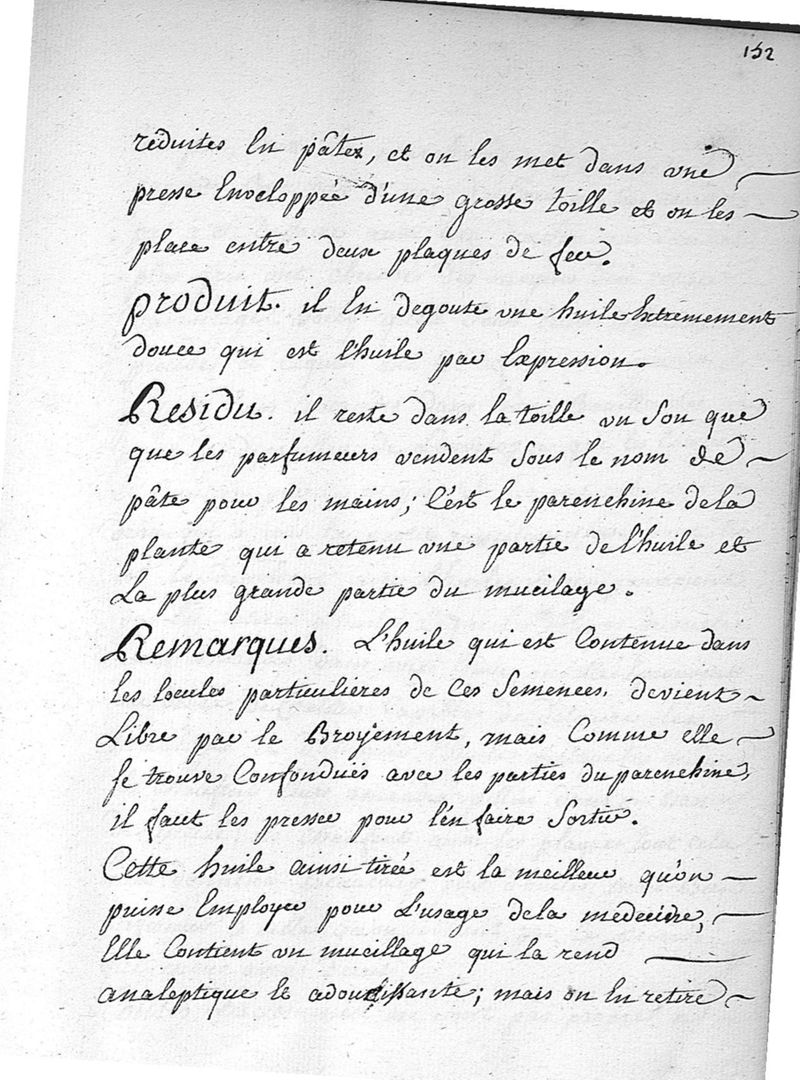 152
reduites En pâtex, et on les met dans une
presse Enveloppéé d'une grosse toille et on les
place entre deux plaques de fer.
produit. il En degoute une huile Extremement
douce qui est l'huile par Expression.
Residu. il reste dans la toille un Son que
que les parfumeurs vendent Sous le nom de
pâte pour les mains; C'est le parenchine de la
plante qui a retenu une partie de l'huile et
La plus grande partie du mucilage.
Remarques. L'huile qui est Contenue dans
les locules particulieres de Ces Semences, devient
Libre par le Broyement, mais Comme elle
se trouve Confonduës avec les parties du parenchine,
il faut les presser pour l'én faire Sortir.
Cette huile ainsi tirée est la meilleur qu'on
puisse Employer pour L'usage de la médecine,
Elle Contient un mucillage qui la rend
analeptique et adoucissante; mais on En retire